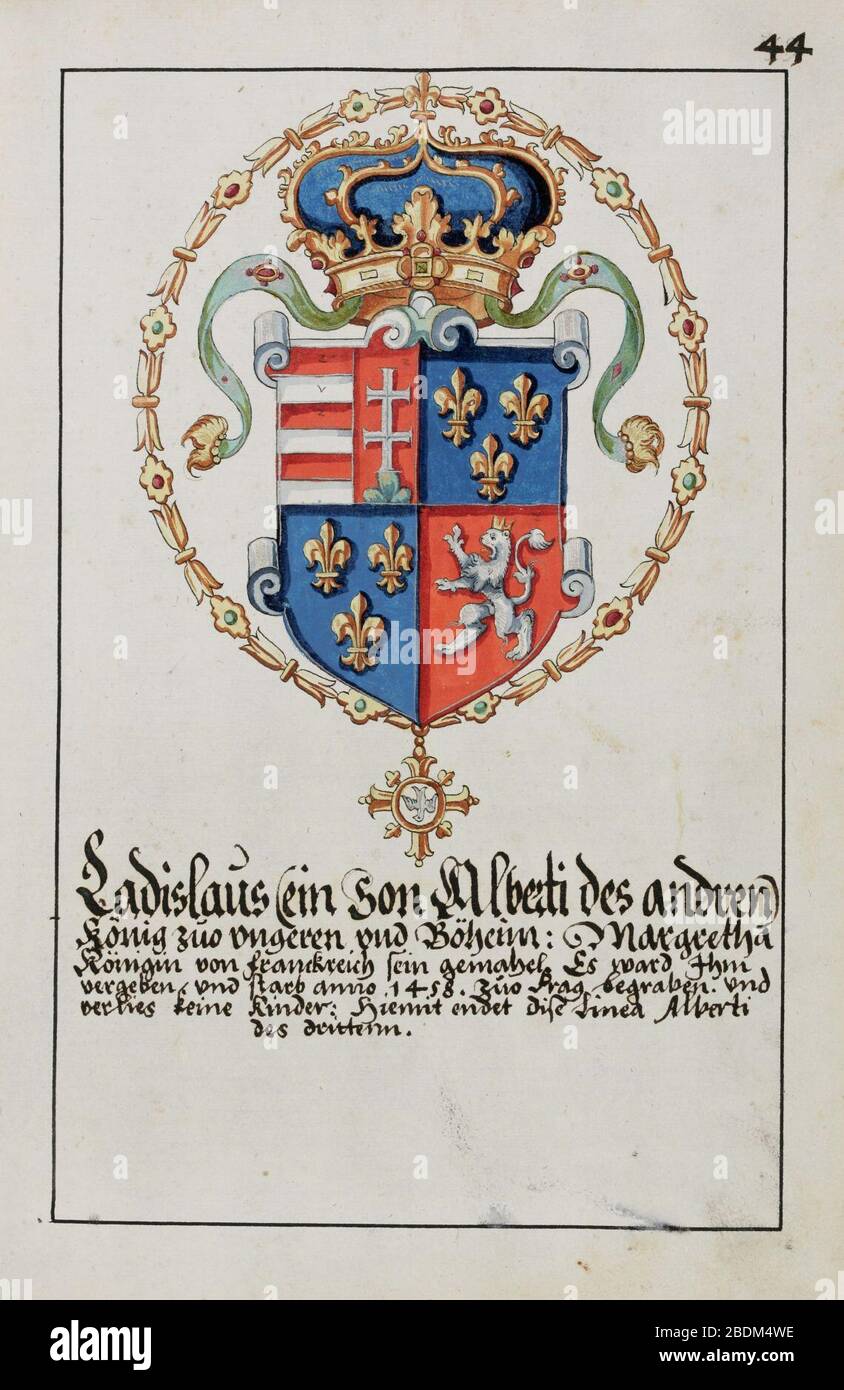 44
Ladislaus (ein Son Alberti des andren)
König zuo vngeren vnd Böheim: Margretha
Königin von franckreich sein gemahel, Es ward Ihm
vergeben, vnd starb anno .1458. zuo Prag begraben. vnd
verlies keine Kinder: Hiemit endet dise Linea Alberti
des drittenn.
alamy
Image ID: 2BDM4WE
www.alamy.com